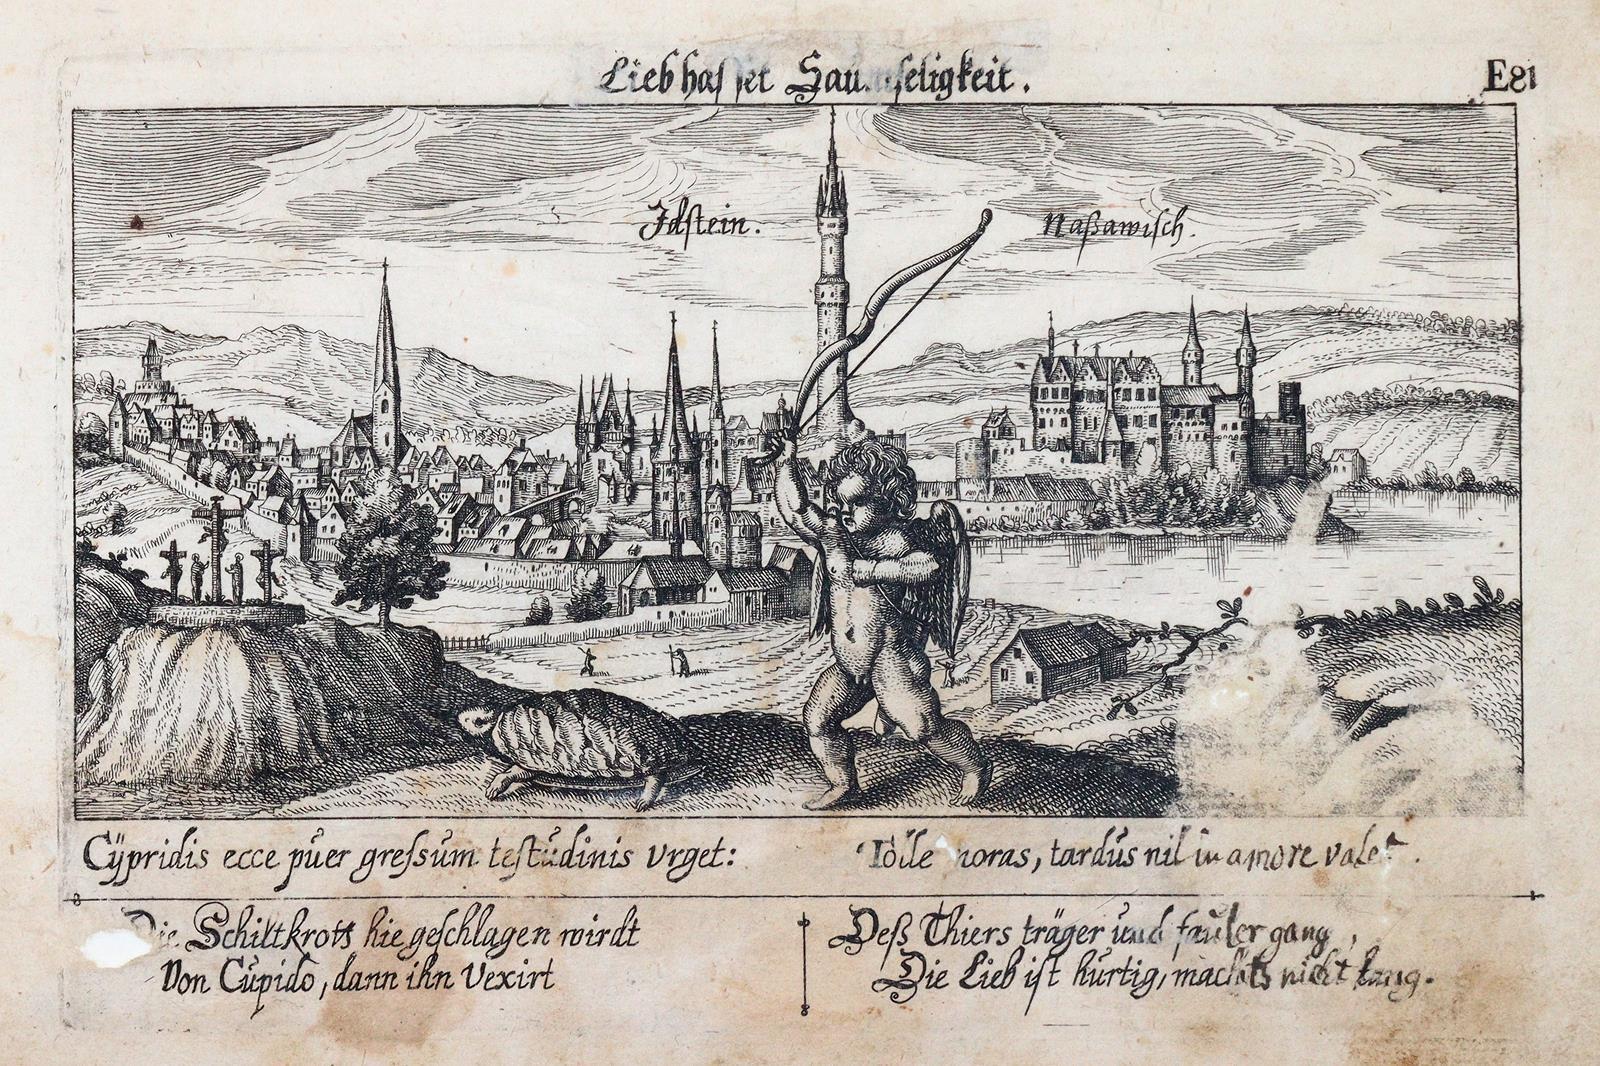 Lieb hasset Saumseligkeit.
E81
Idstein.
Naßawisch.
Cÿpridis ecce pŭer gresſum teſtŭdinis vrget:
Tolle moras, tardŭs nil in amore valet.
Die Schiltkrott hie geſchlagen wirdt
Von Cŭpido, dann ihn Vexirt
Deß Thiers träger ŭnd faŭler gang,
Die Lieb iſt hŭrtig, machts nicht lang.